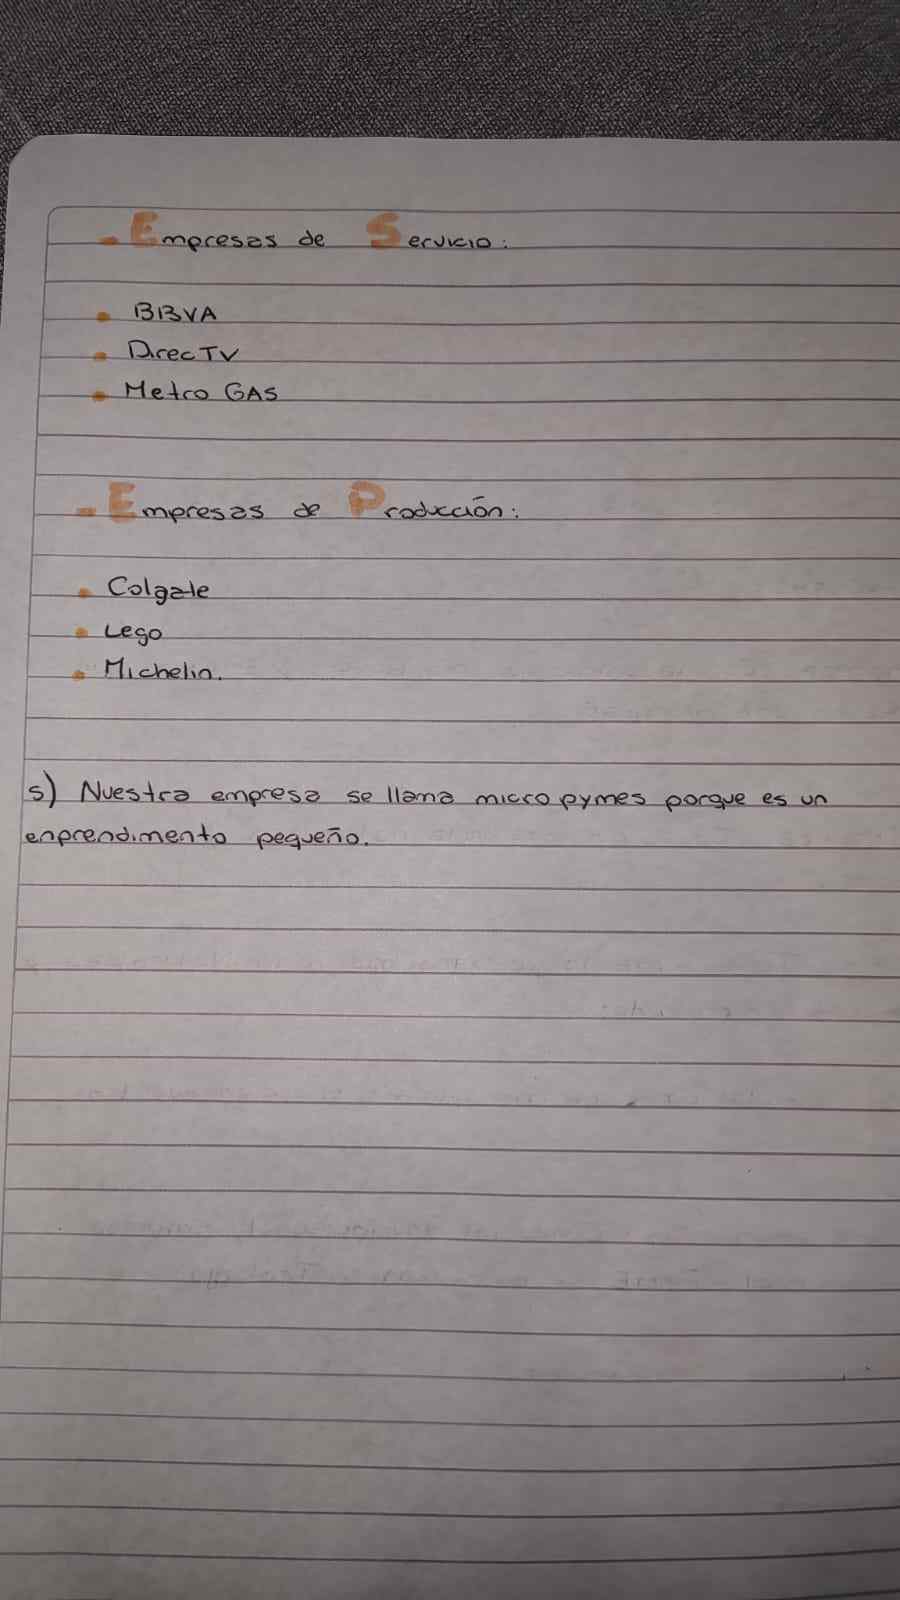 - Empresas de Servicio:
• BBVA
• DirecTV
• Metro GAS
- Empresas de Producción:
• Colgate
• Lego
• Michelin.
5) Nuestra empresa se llama micro pymes porque es un
enprendimento pequeño.